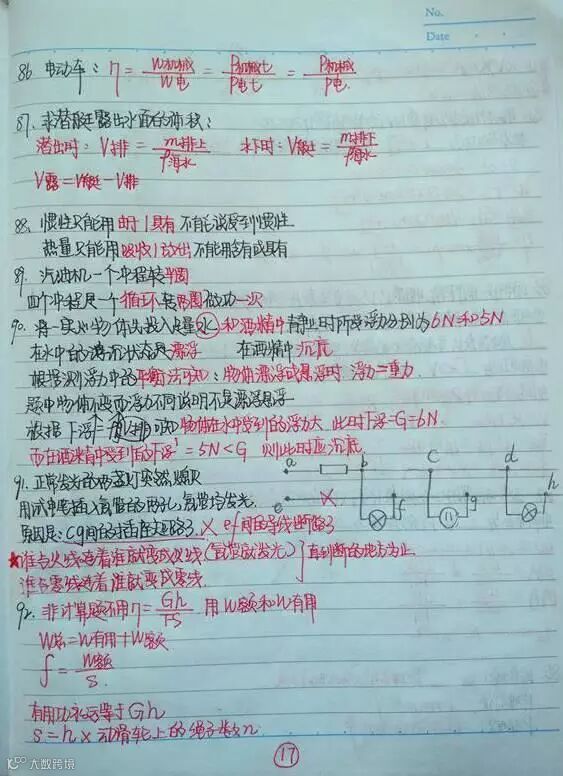 No.
Date
86. 电动车：η = W机械/W电 = P机械t/P电t = P机械/P电.
87. 求潜艇露出水面的体积：
潜出时：V排 = m排上/ρ海水 水下时：V艇 = m排下/ρ海水
V露 = V艇 - V排
88. 惯性只能用由于/具有 不能说受到惯性
热量只能用吸收/放出 不能用含有或具有
89. 汽油机一个冲程转半圈
四个冲程是一个循环、转两圈 做功一次
90. 将一实心物体先投入足量水和酒精中 静止时所受浮力分别为6N和5N
在水中的沉状态是漂浮 在酒精中沉底
根据测浮力中的平衡法可知：物体漂浮或悬浮时 浮力=重力
题中物体不变而浮力不同说明不是漂浮悬浮
根据F浮= 可知物体在水中受到的浮力大 此时F浮=G=6N.
而在酒精中受到的F浮' = 5N < G 则此时应沉底
91. 正常发光的灯突然熄灭
用试电笔插入氖管的两孔，氖管均发光.
原因是：cg间的插座短路了 × ef间的导线断路了
a b c d e f g h
M
★谁与火线挨着谁就变成火线（氖管就发光）
谁与零线挨着谁就变成零线 } 直到断的地方为止
92. 非计算题不用η = Gh/FS 用W额和W有用
W总 = W有用 + W额
f = W额/S.
有用功永远等于Gh
S = h × 动滑轮上的绳子段数n.
17
大数跨境